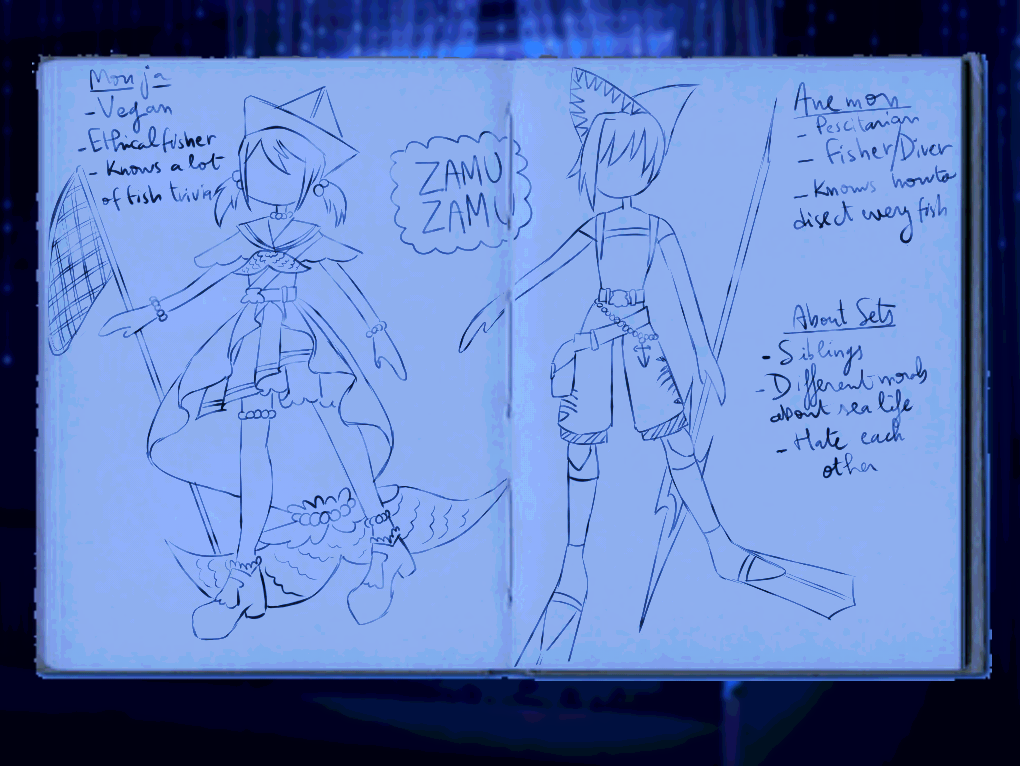 Monja
- Vegan
- Ethical fisher
- Knows a lot
of fish trivia
ZAMU
ZAMU
Anemon
- Pescitarian
- Fisher/Diver
- Knows how to
disect every fish
About Sets
- Siblings
- Different morals
about sea life
- Hate each
other